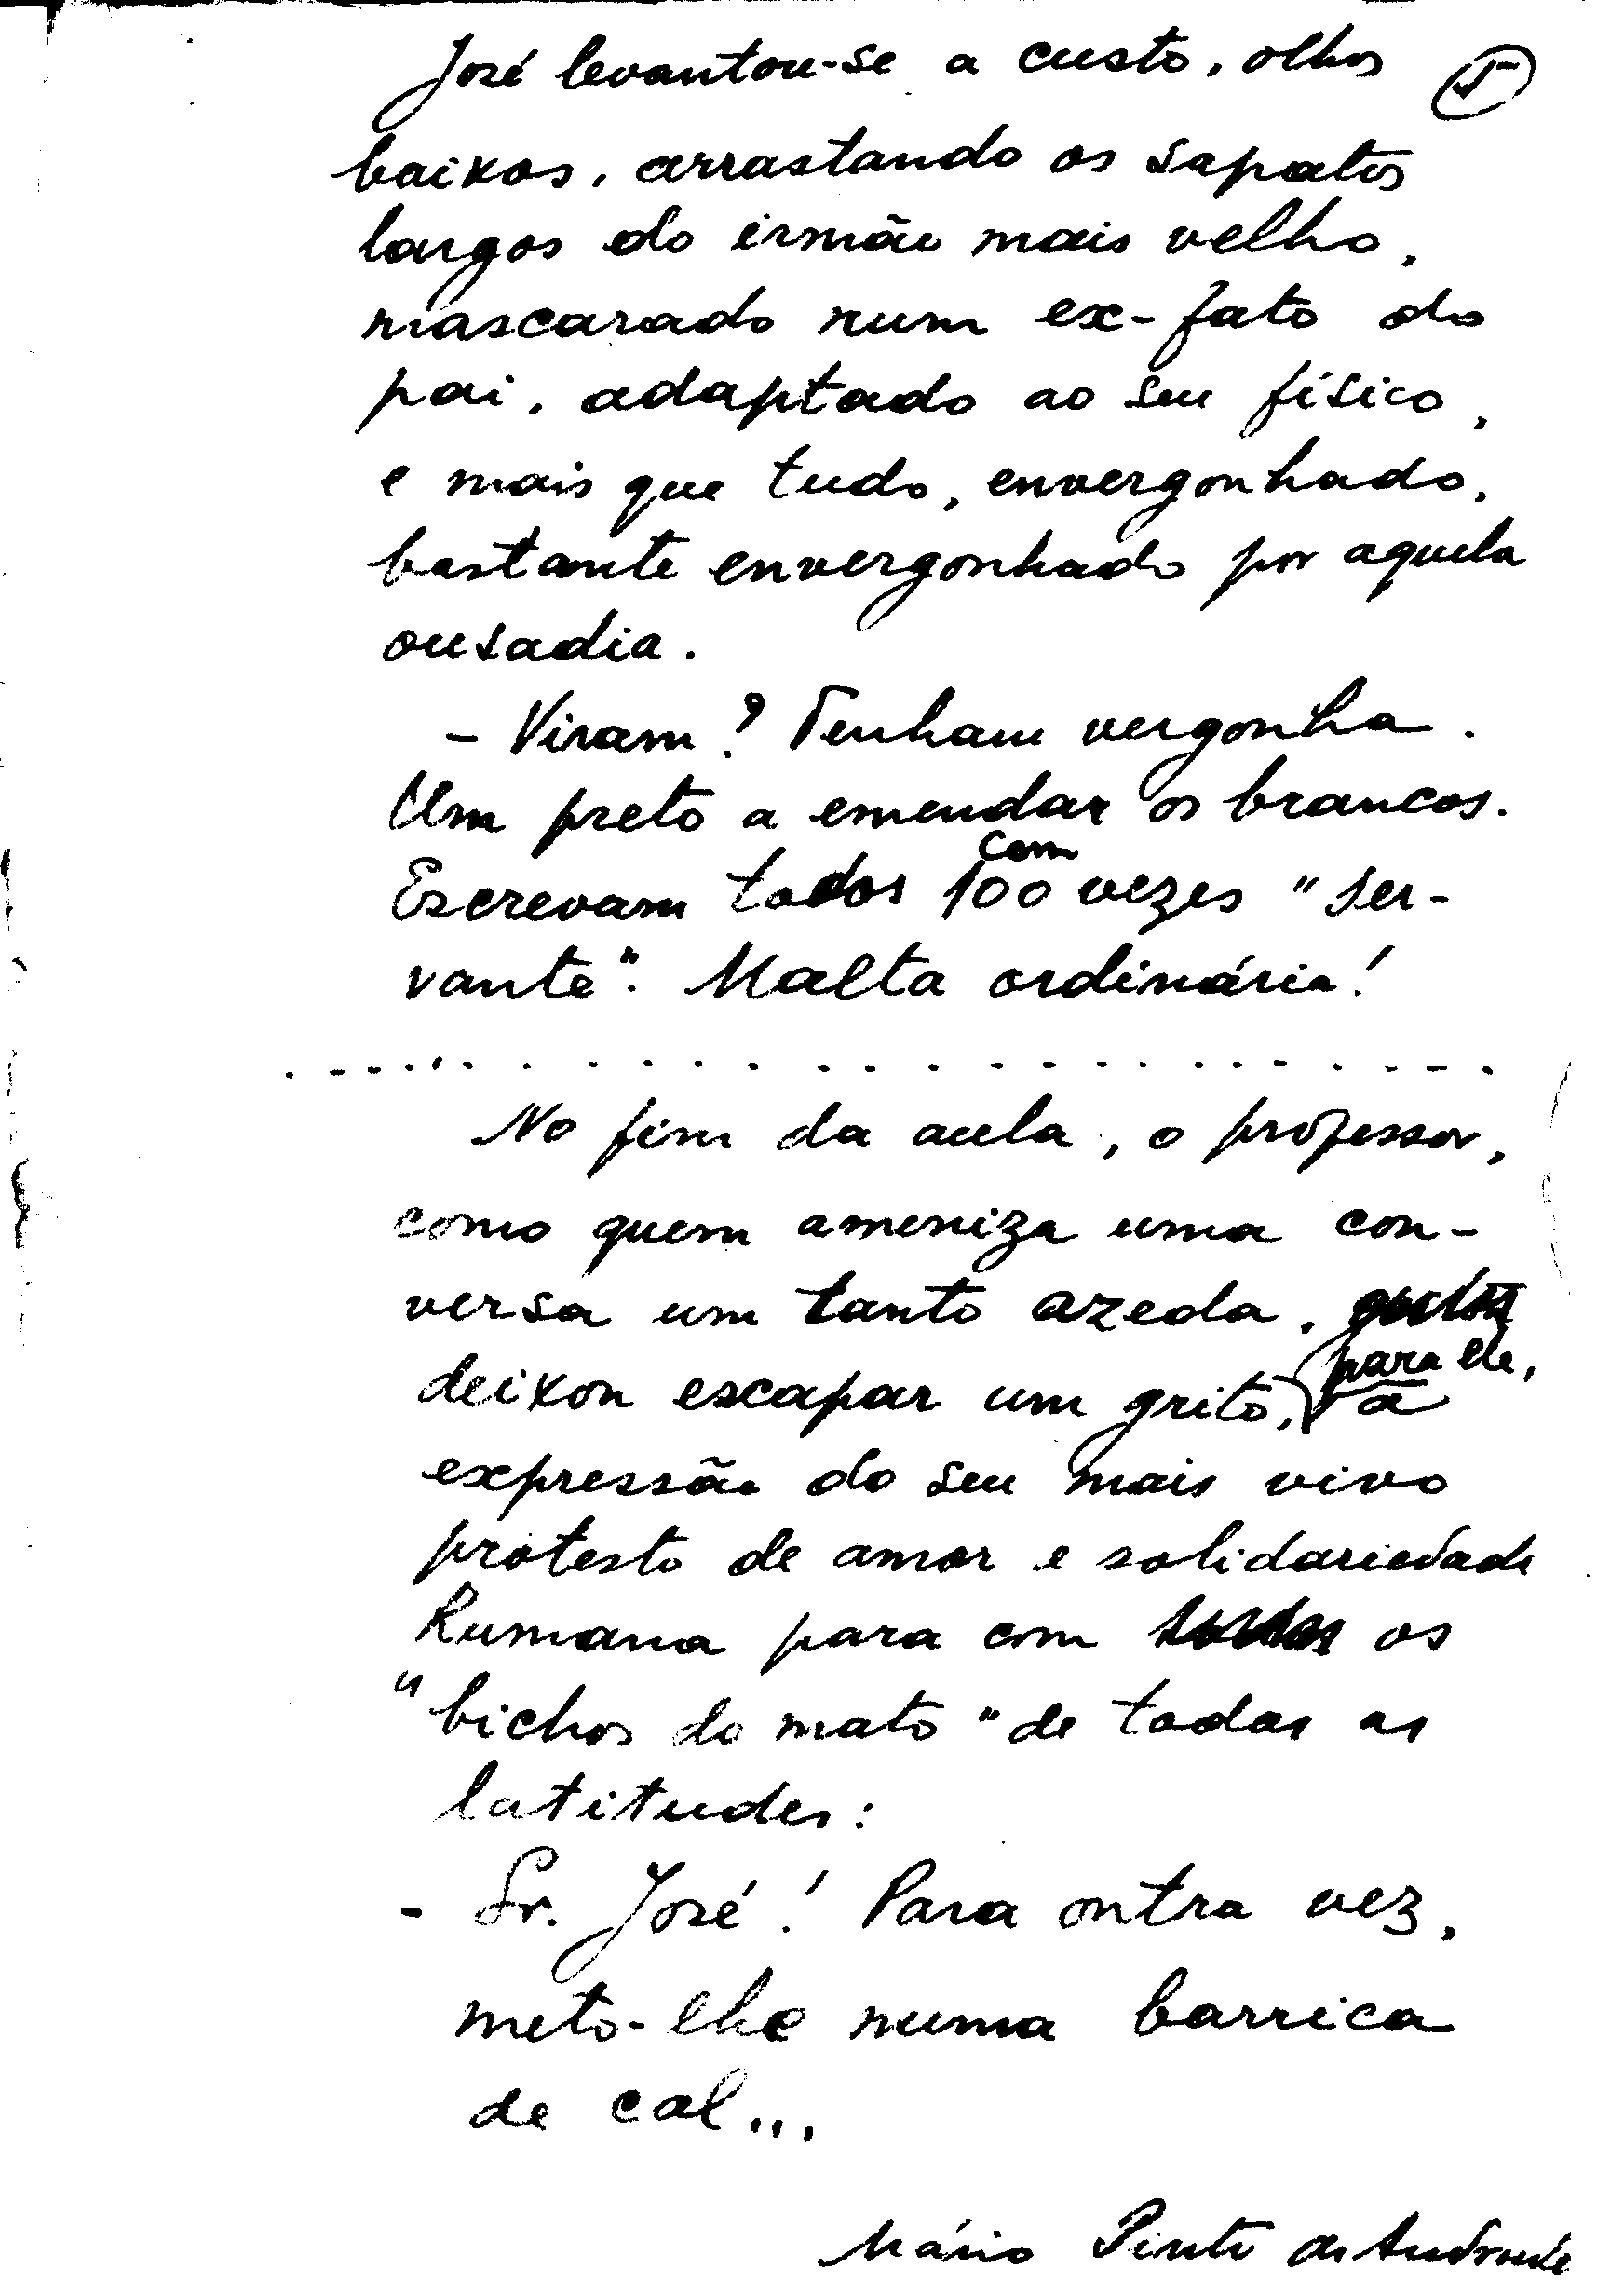 José levantou-se a custo, olhos
5
baixos, arrastando os sapatos
largos do irmão mais velho,
mascarado num ex-fato do
pai, adaptado ao seu físico,
e mais que tudo, envergonhado,
bastante envergonhado por aquela
ousadia.
- Viram? Tenham vergonha.
Um preto a emendar os brancos.
com
Escrevam todos 100 vezes "ser-
vante". Malta ordinária!
. . . . . . . . . . . . . . . . . . . . . . . .
No fim da aula, o professor,
como quem ameniza uma con-
versa um tanto azeda,
para ele,
deixou escapar um grito, a
expressão do seu mais vivo
protesto de amor e solidariedade
humana para com todos os
"bichos do mato" de todas as
latitudes:
- Sr. José! Para outra vez,
meto-lhe numa barrica
de cal...
Mário Pinto de Andrade